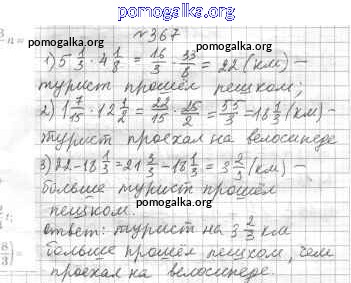 pomogalka.org
№367
pomogalka.org
1) 5 1/3 · 4 1/8 = 16/3 · 33/8 = 22 (км) –
турист прошёл пешком;
pomogalka.org
2) 1 7/15 · 12 1/2 = 22/15 · 25/2 = 55/3 = 18 1/3 (км) –
турист проехал на велосипеде
pomogalka.org
3) 22 – 18 1/3 = 21 3/3 – 18 1/3 = 3 2/3 (км) –
больше турист прошёл
пешком.
pomogalka.org
ответ: турист на 3 2/3 км
больше прошёл пешком, чем
проехал на велосипеде.
pomogalka.org